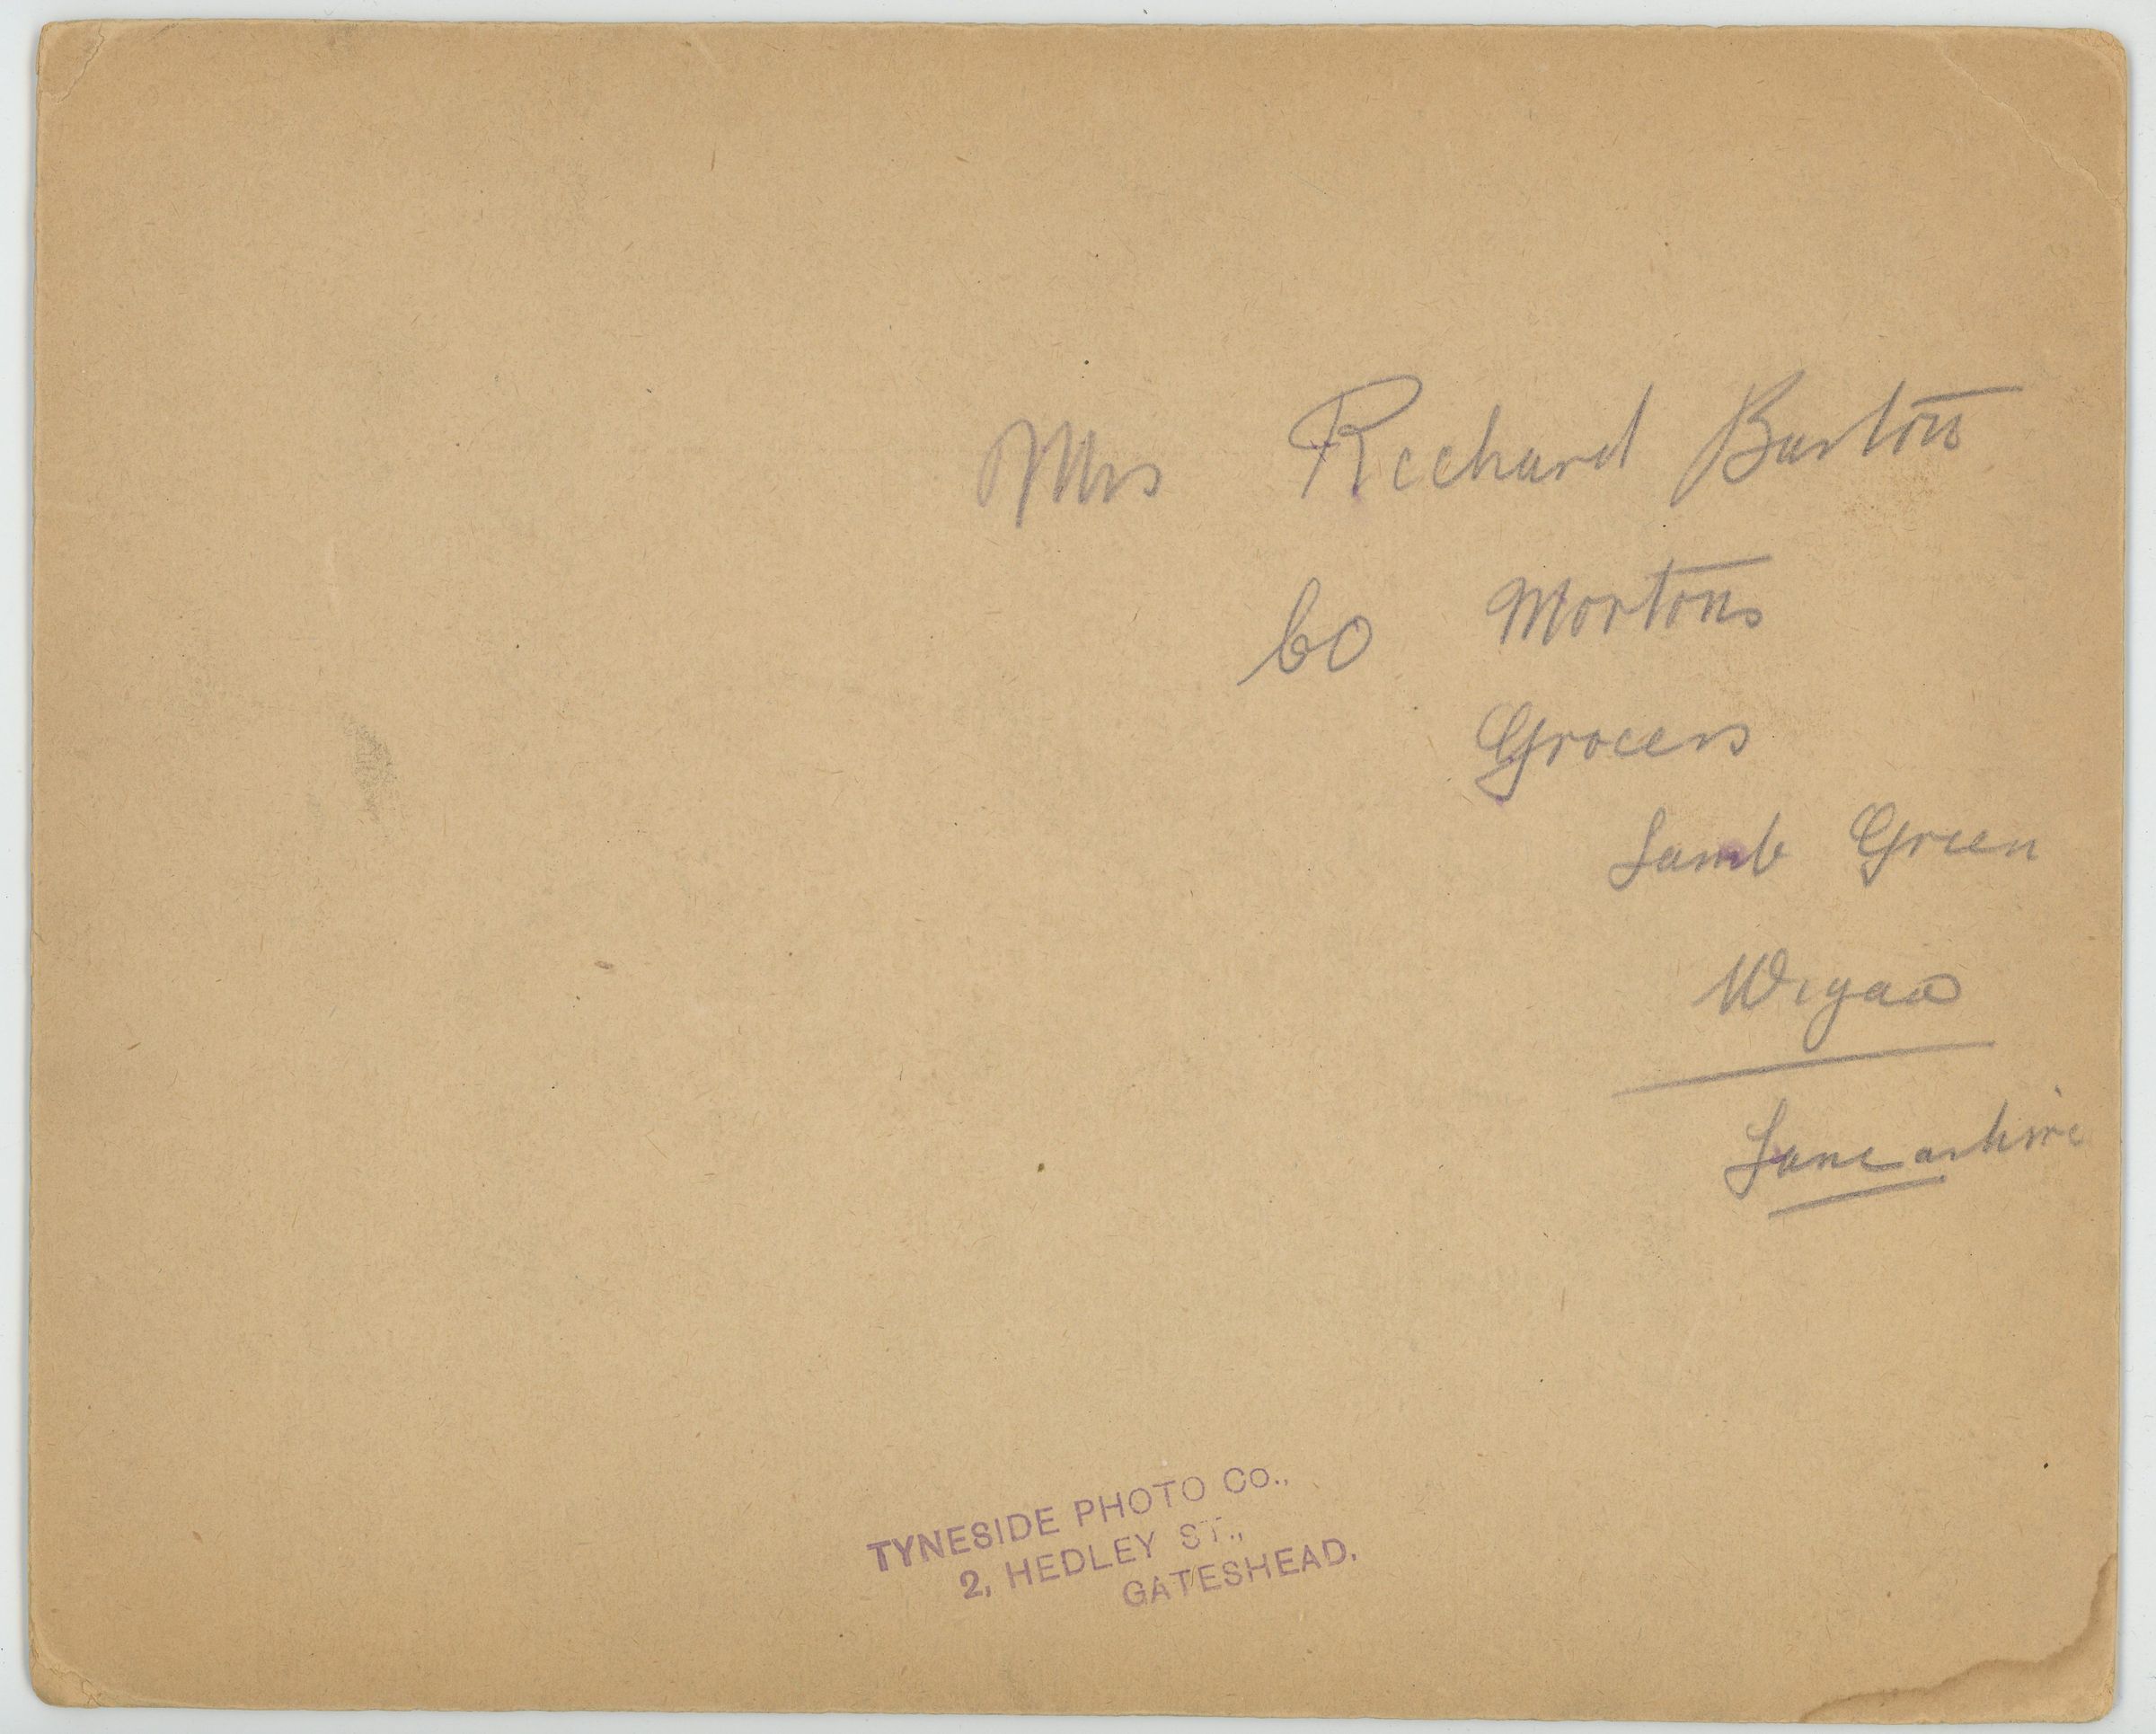 Mrs Richard Barton
Co Mortons
Grocers
Lamb Green
Wigan
Lancashire
TYNESIDE PHOTO CO.,
2, HEDLEY ST.,
GATESHEAD.